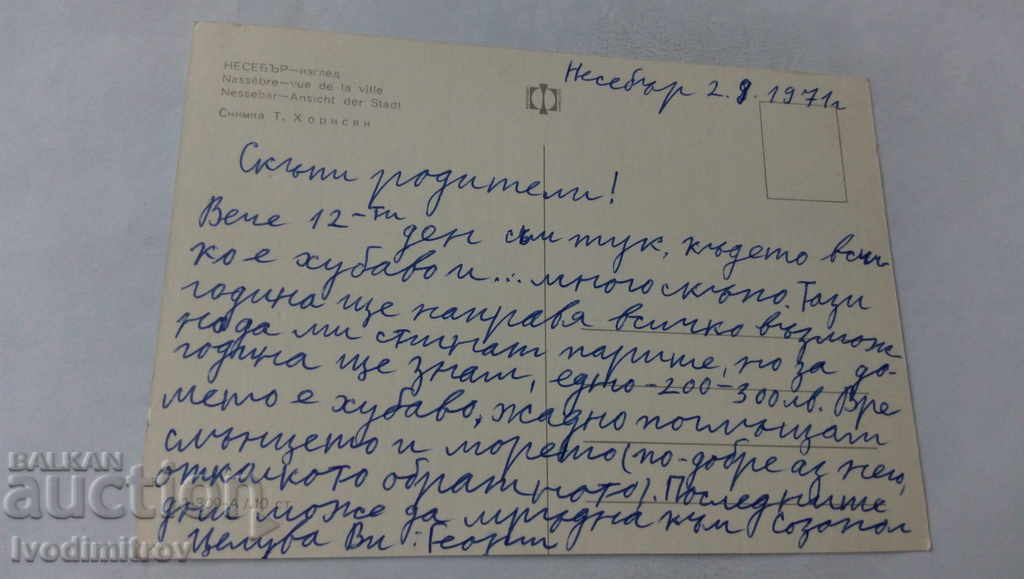 НЕСЕБЪР—изглед
Nassébre—vue de la ville
Nessebar—Ansicht der Stadt
Снимка Т. Хорисян
Несебър 2.8.1971г
Скъпи родители!
Вече 12-ти ден съм тук, където всич-
ко е хубаво и... много скъпо. Тази
година ще направя всичко възмож
но да ми стигнат парите, но за до-
година ще знам, едно-200-300лв. Вре
мето е хубаво, жадно поглъщам
слънцето и морето (по-добре аз него,
отколкото обратното). Последните
дни може да мръдна към Созопол
Целува Ви: Георги
BALKAN
auction
Ivodimitrov